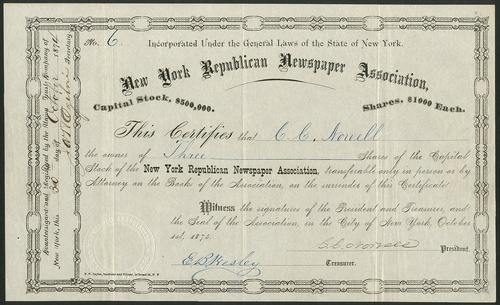 No. 6
Incorporated Under the General Laws of the State of New York.
New York Republican Newspaper Association,
Capital Stock, $500,000.
Shares, $1000 Each.
This Certifies that C. C. Norvell
the owner of Three Shares of the Capital
Stock of the New York Republican Newspaper Association, transferable only in person or by
Attorney on the Books of the Association, on the surrender of this Certificate
Witness the signatures of the President and Treasurer, and
the Seal of the Association, in the City of New York, October
1st, 1870.
C. C. Norvell
President.
E. B. Wesley
Treasurer.
Countersigned and Registered by the Union Trust Company of
New York, this day of 1870
Secretary